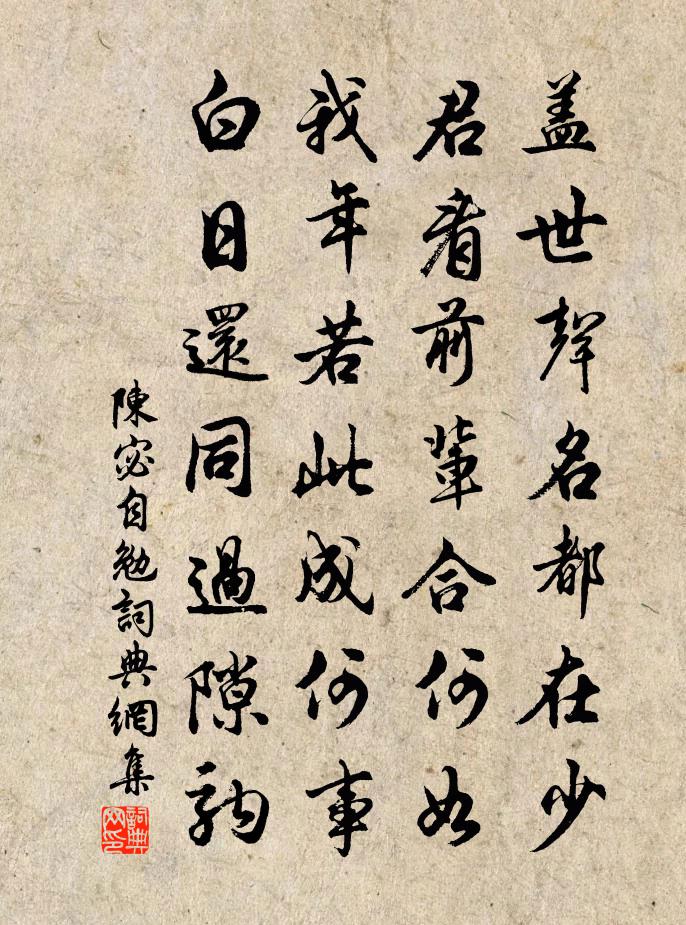 蓋世聲名都在少
君看前輩合何如
我年若此成何事
白日還同過隙駒
陳宓自勉詞典網集
詞典網印